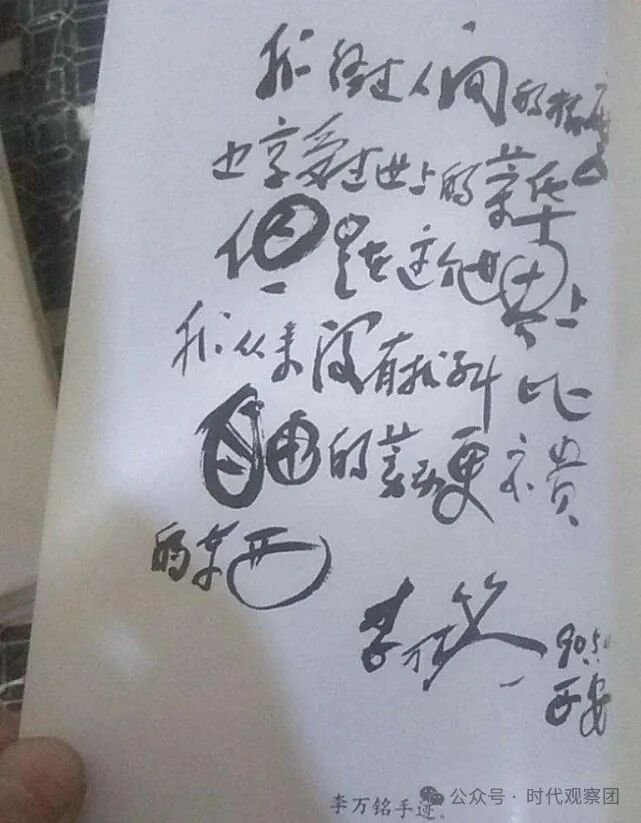 我经过人间的
也享受过世上的荣华
但是在这个世界上
我从来没有找到比
自由的劳动更宝贵
的东西
李万铭
90.5
西安
李万铭手迹.
公众号·时代观察团